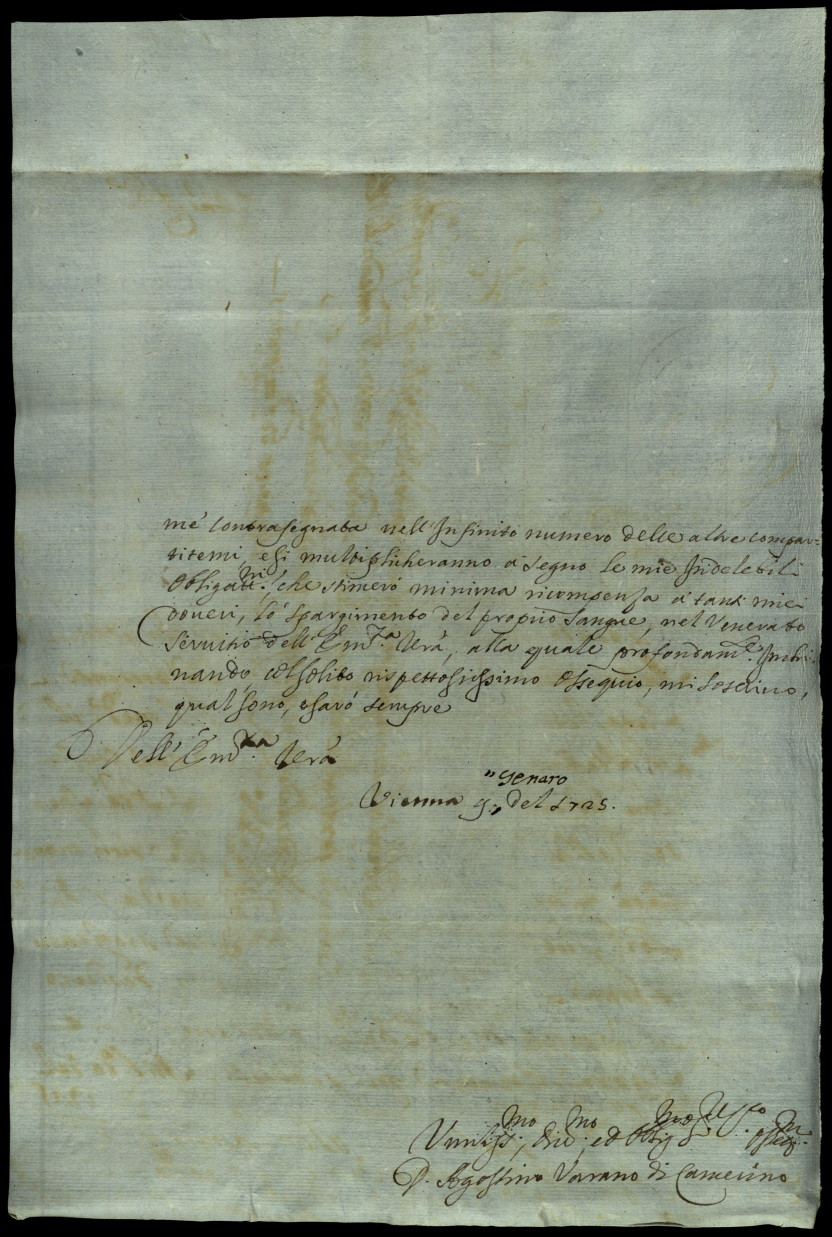 me contrasegnata nell'Infinito numero delle altre compar=
titemi, e si multiplicheranno a segno le mie Indelebili
Obligat.ni che stimerò minima ricompensa a' tanti miei
doveri, lo spargimento del proprio Sangue, nel Venerato
Servitio dell'Em.za V'ra, alla quale profondam.te Inchi=
nando col solito rispettosissimo Ossequio, mi soscrivo,
qual sono, e sarò sempre
Dell'Em.za V'ra
Vienna 9., Genaro del 1725.
Umiliss.mo, Div.mo, ed Oblig.mo
D. Agostino Varano di Camerino